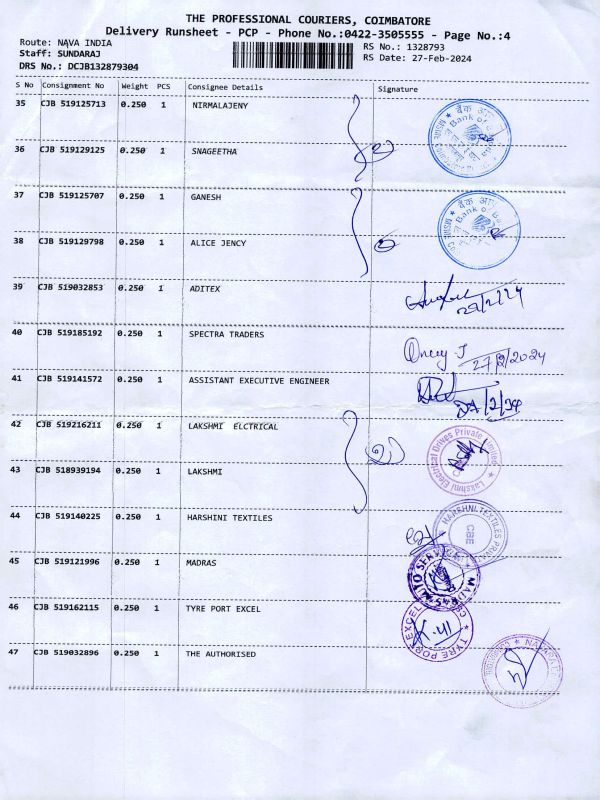 THE PROFESSIONAL COURIERS, COIMBATORE
Delivery Runsheet - PCP - Phone No.:0422-3505555 - Page No.:4
Route: NAVA INDIA
Staff: SUNDARAJ
DRS No.: DCJB132879304
RS No.: 1328793
RS Date: 27-Feb-2024
S No Consignment No Weight PCS Consignee Details Signature
35 CJB 519125713 0.250 1 NIRMALAJENY
36 CJB 519129125 0.250 1 SNAGEETHA
37 CJB 519125707 0.250 1 GANESH
38 CJB 519129798 0.250 1 ALICE JENCY
39 CJB 519032853 0.250 1 ADITEX
40 CJB 519185192 0.250 1 SPECTRA TRADERS
27/2/2024
41 CJB 519141572 0.250 1 ASSISTANT EXECUTIVE ENGINEER
42 CJB 519216211 0.250 1 LAKSHMI ELCTRICAL
Lakshmi Electrical Drives Private Limited
43 CJB 518939194 0.250 1 LAKSHMI
44 CJB 519140225 0.250 1 HARSHINI TEXTILES
CBE
45 CJB 519121996 0.250 1 MADRAS
46 CJB 519162115 0.250 1 TYRE PORT EXCEL
TYRE PORT EXCEL
47 CJB 519032896 0.250 1 THE AUTHORISED